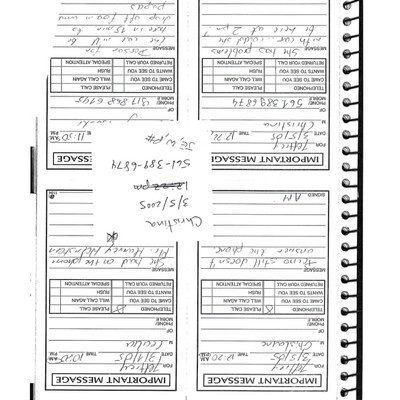 IMPORTANT MESSAGE
FOR Jeffrey
DATE 3/5/05 TIME 12:20 P.M.
M Ghislaine
OF
PHONE/
MOBILE
TELEPHONED PLEASE CALL
CAME TO SEE YOU WILL CALL AGAIN
WANTS TO SEE YOU RUSH
RETURNED YOUR CALL SPECIAL ATTENTION
MESSAGE
still doesn't
answer the phone
SIGNED AM
IMPORTANT MESSAGE
FOR Jeffrey
DATE TIME 10:20
M Cecilia
OF
PHONE/
MOBILE
TELEPHONED PLEASE CALL
CAME TO SEE YOU WILL CALL AGAIN
WANTS TO SEE YOU RUSH
RETURNED YOUR CALL SPECIAL ATTENTION
MESSAGE
She had on the phone
Mr. Harvey Weinstein
Christina
3/5/2005
561-389-6874
JE,
IMPORTANT MESSAGE
FOR Jeffrey
DATE 3/5/05
M Christina
OF
PHONE/
MOBILE 561 389 6874
TELEPHONED PLEASE CALL
CAME TO SEE YOU WILL CALL AGAIN
WANTS TO SEE YOU RUSH
RETURNED YOUR CALL SPECIAL ATTENTION
MESSAGE
She has problems
with car. could she
be here at 2 pm?
IMPORTANT MESSAGE
11:30
OF
TELEPHONED PLEASE CALL
CAME TO SEE YOU WILL CALL AGAIN
WANTS TO SEE YOU RUSH
RETURNED YOUR CALL SPECIAL ATTENTION
MESSAGE
Person for
the car will be
here in 15 min to
drop off